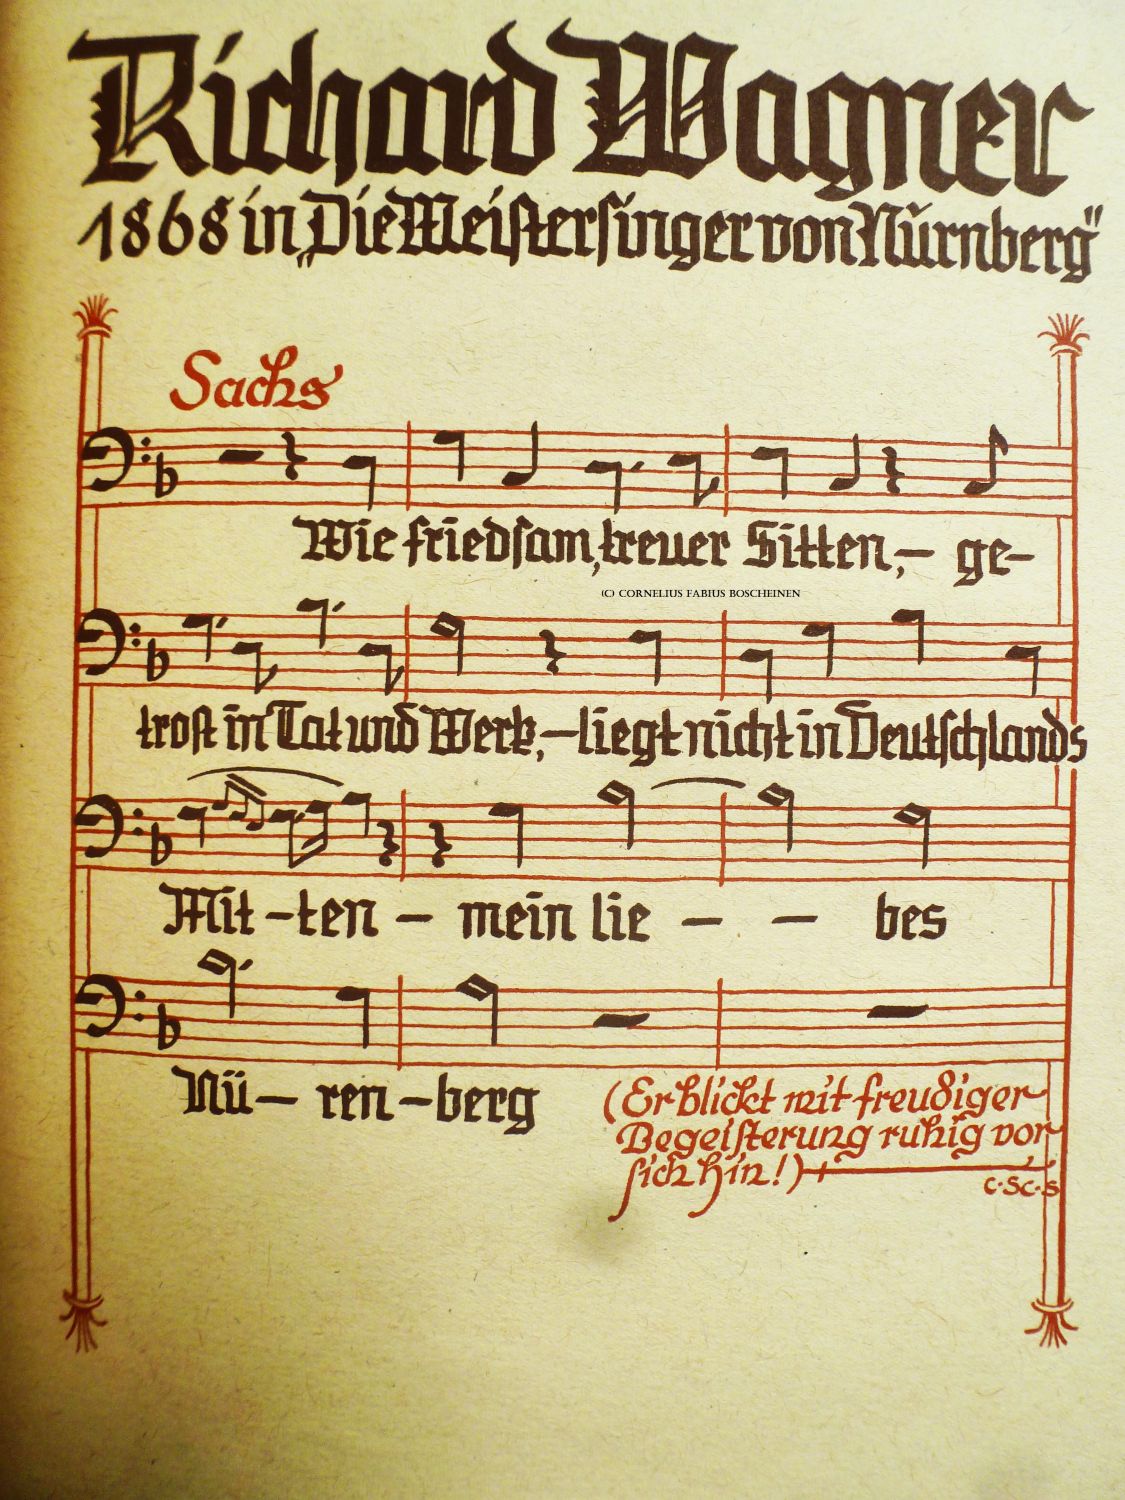 Richard Wagner
1868 in „Die Meistersinger von Nürnberg"
Sachs
Wie friedsam, treuer Sitten, – ge–
(C) CORNELIUS FABIUS BOSCHEINEN
trost in Tat und Werk, – liegt nicht in Deutschlands
Mit – ten – mein lie – – bes
Nü – ren – berg
(Er blickt mit freudiger
Begeisterung ruhig vor
sich hin!)
C. Sc. S